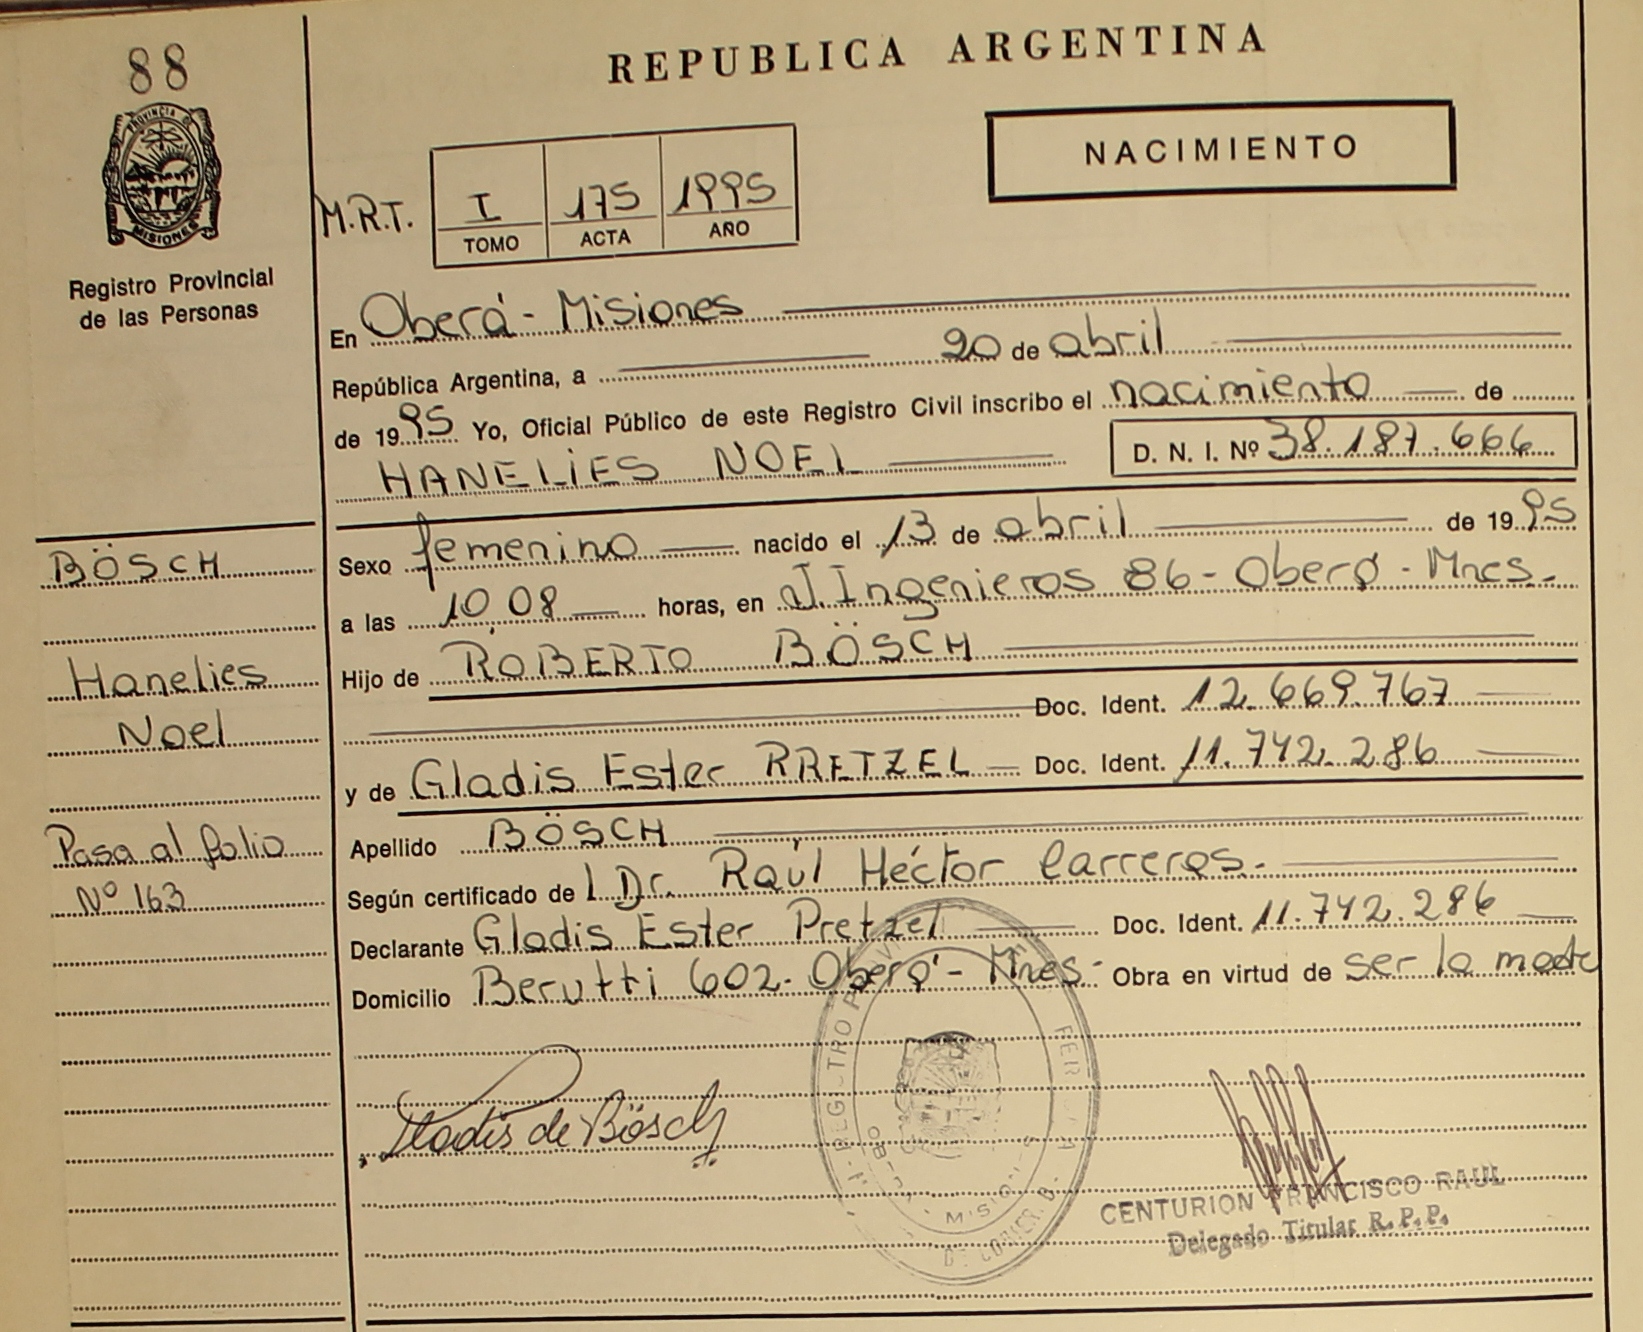 88
REPUBLICA ARGENTINA
PROVINCIA DE
MISIONES
NACIMIENTO
M.R.T.
I 175 1995
TOMO ACTA AÑO
Registro Provincial
de las Personas
En Oberá - Misiones
República Argentina, a 20 de abril
de 1995 Yo, Oficial Público de este Registro Civil inscribo el nacimiento de
HANELIES NOEL D. N. I. Nº 38.187.666
BÖSCH
Hanelies
Noel
Pasa al folio
Nº 163
Sexo femenino nacido el 13 de abril de 1995
a las 10 08 horas, en J. Ingenieros 86 - Oberá - Mnes.
Hijo de ROBERTO BÖSCH
Doc. Ident. 12.669.767
y de Gladis Ester PRETZEL Doc. Ident. 11.742.286
Apellido BÖSCH
Según certificado de l Dr. Raúl Héctor Carreras.
Declarante Gladis Ester Pretzel Doc. Ident. 11.742.286
Domicilio Berutti 602 - Oberá - Mnes - Obra en virtud de ser la madre
Gladis de Bösch
CENTURION FRANCISCO RAUL
Delegado Titular R. P. P.